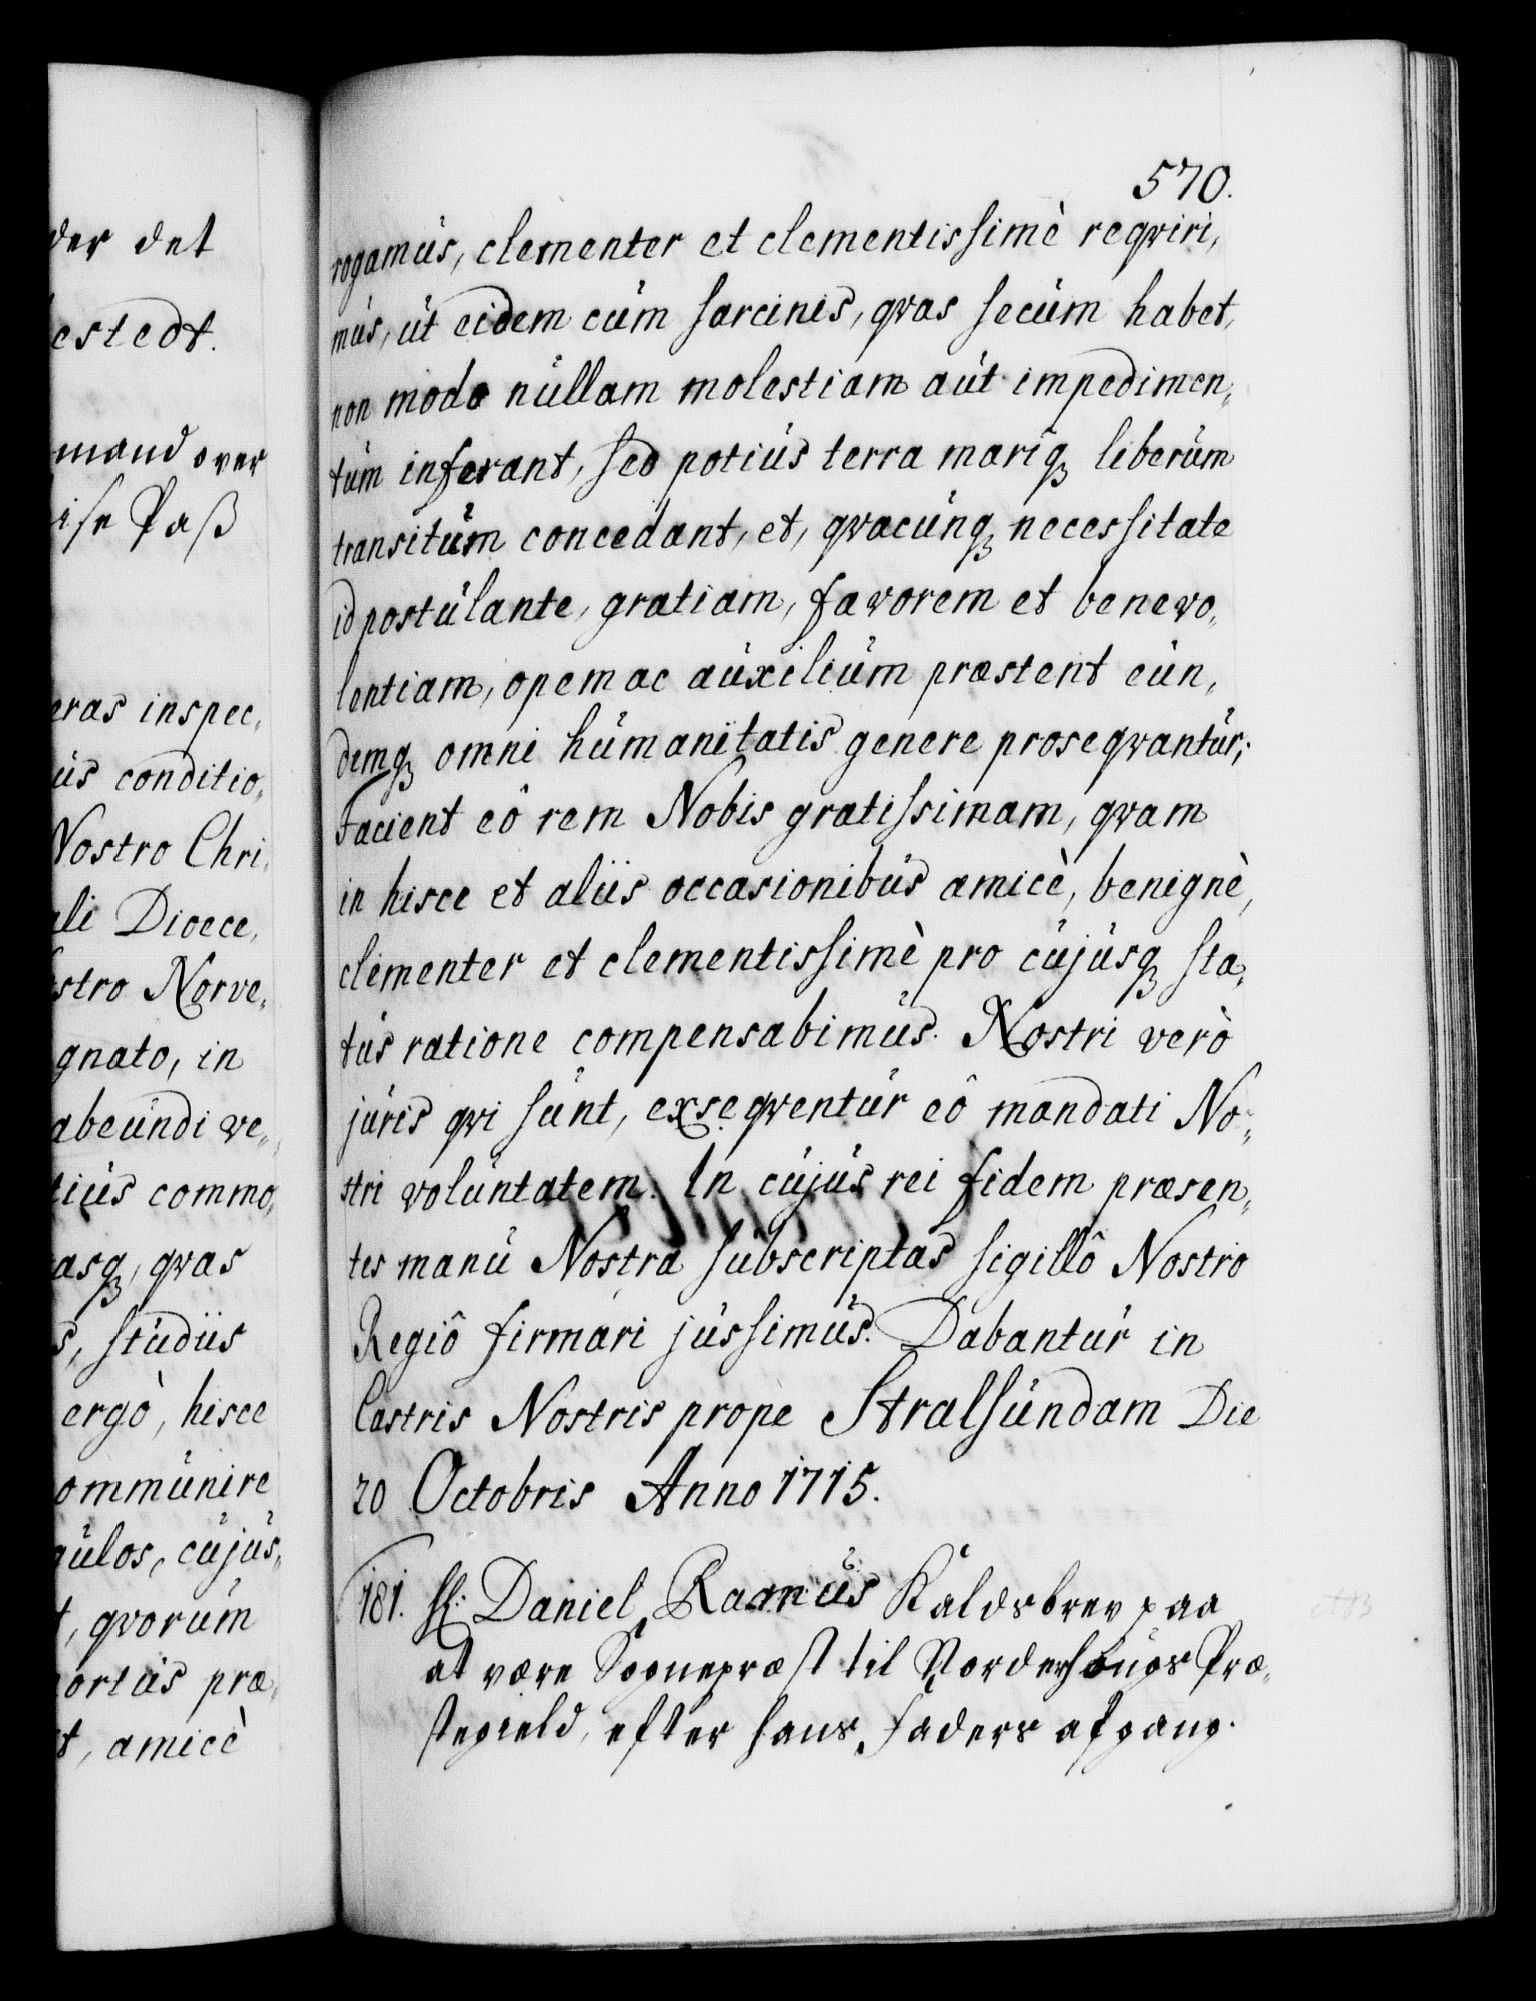 der det
estedt.
mand over
ise Paß
eras inspec,
us conditio,
Nostro Chri,
ali Dioece,
stro Norve,
gnato, in
abeundi ve,
tius commo,
asq, qvas
s, studiis
ergò, hisce
ommunire
gulos, cujus,
t, qvorum
ortus præ,
t, amicè
570.
rogamus, clementer et clementissimè reqviri,
mus, ut eidem cum sarcinis, qvas secum habet,
non modo nullam molestiam aut impedimen,
tum inferant, sed potius terra mariq liberum
transitum concedant, et, qvacunq necessitate
id postulante, gratiam, favorem et benevo,
lentiam, opem ac auxilium præstent eun,
demq omni humanitatis genere proseqvantur;
Facient eô rem Nobis gratissimam, qvam
in hisce et aliis occasionibus amicè, benignè,
clementer et clementissimè pro cujusq sta,
tus ratione compensabimus. Nostri verò
juris qvi sunt, exseqventur eô mandati No,
stri voluntatem. In cujus rei fidem præsen,
tes manu Nostra subscriptas sigillô Nostro
Regiô firmari jussimus. Dabantur in
Castris Nostris prope Stralsundam Die
20 Octobris Anno 1715.
181. Hr: Daniel Ramus Kaldsbrev paa
at være Sognepræst til Norderhougs Præ,
stegield, efter hans Faders afgang.